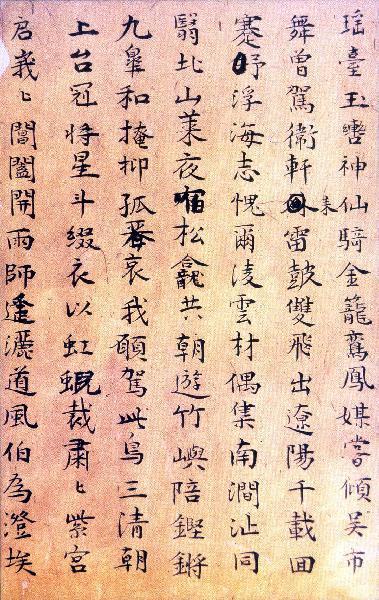 瑤臺玉轡神仙騎金籠鸞鳳媒嘗傾吴市
舞曾駕衛軒来雷鼓雙飛出遼陽千載回
蹇浮海志愧爾淩雲材偶集南澗沚同
翳北山萊夜宿松龕共朝遊竹嶼陪鏗鏘
九皐和掩抑孤哀我願駕此鳥三清朝
上台冠将星斗綴衣以虹蜺裁肅〻紫宮
君峩〻閶闔開雨師灑道風伯為澄埃